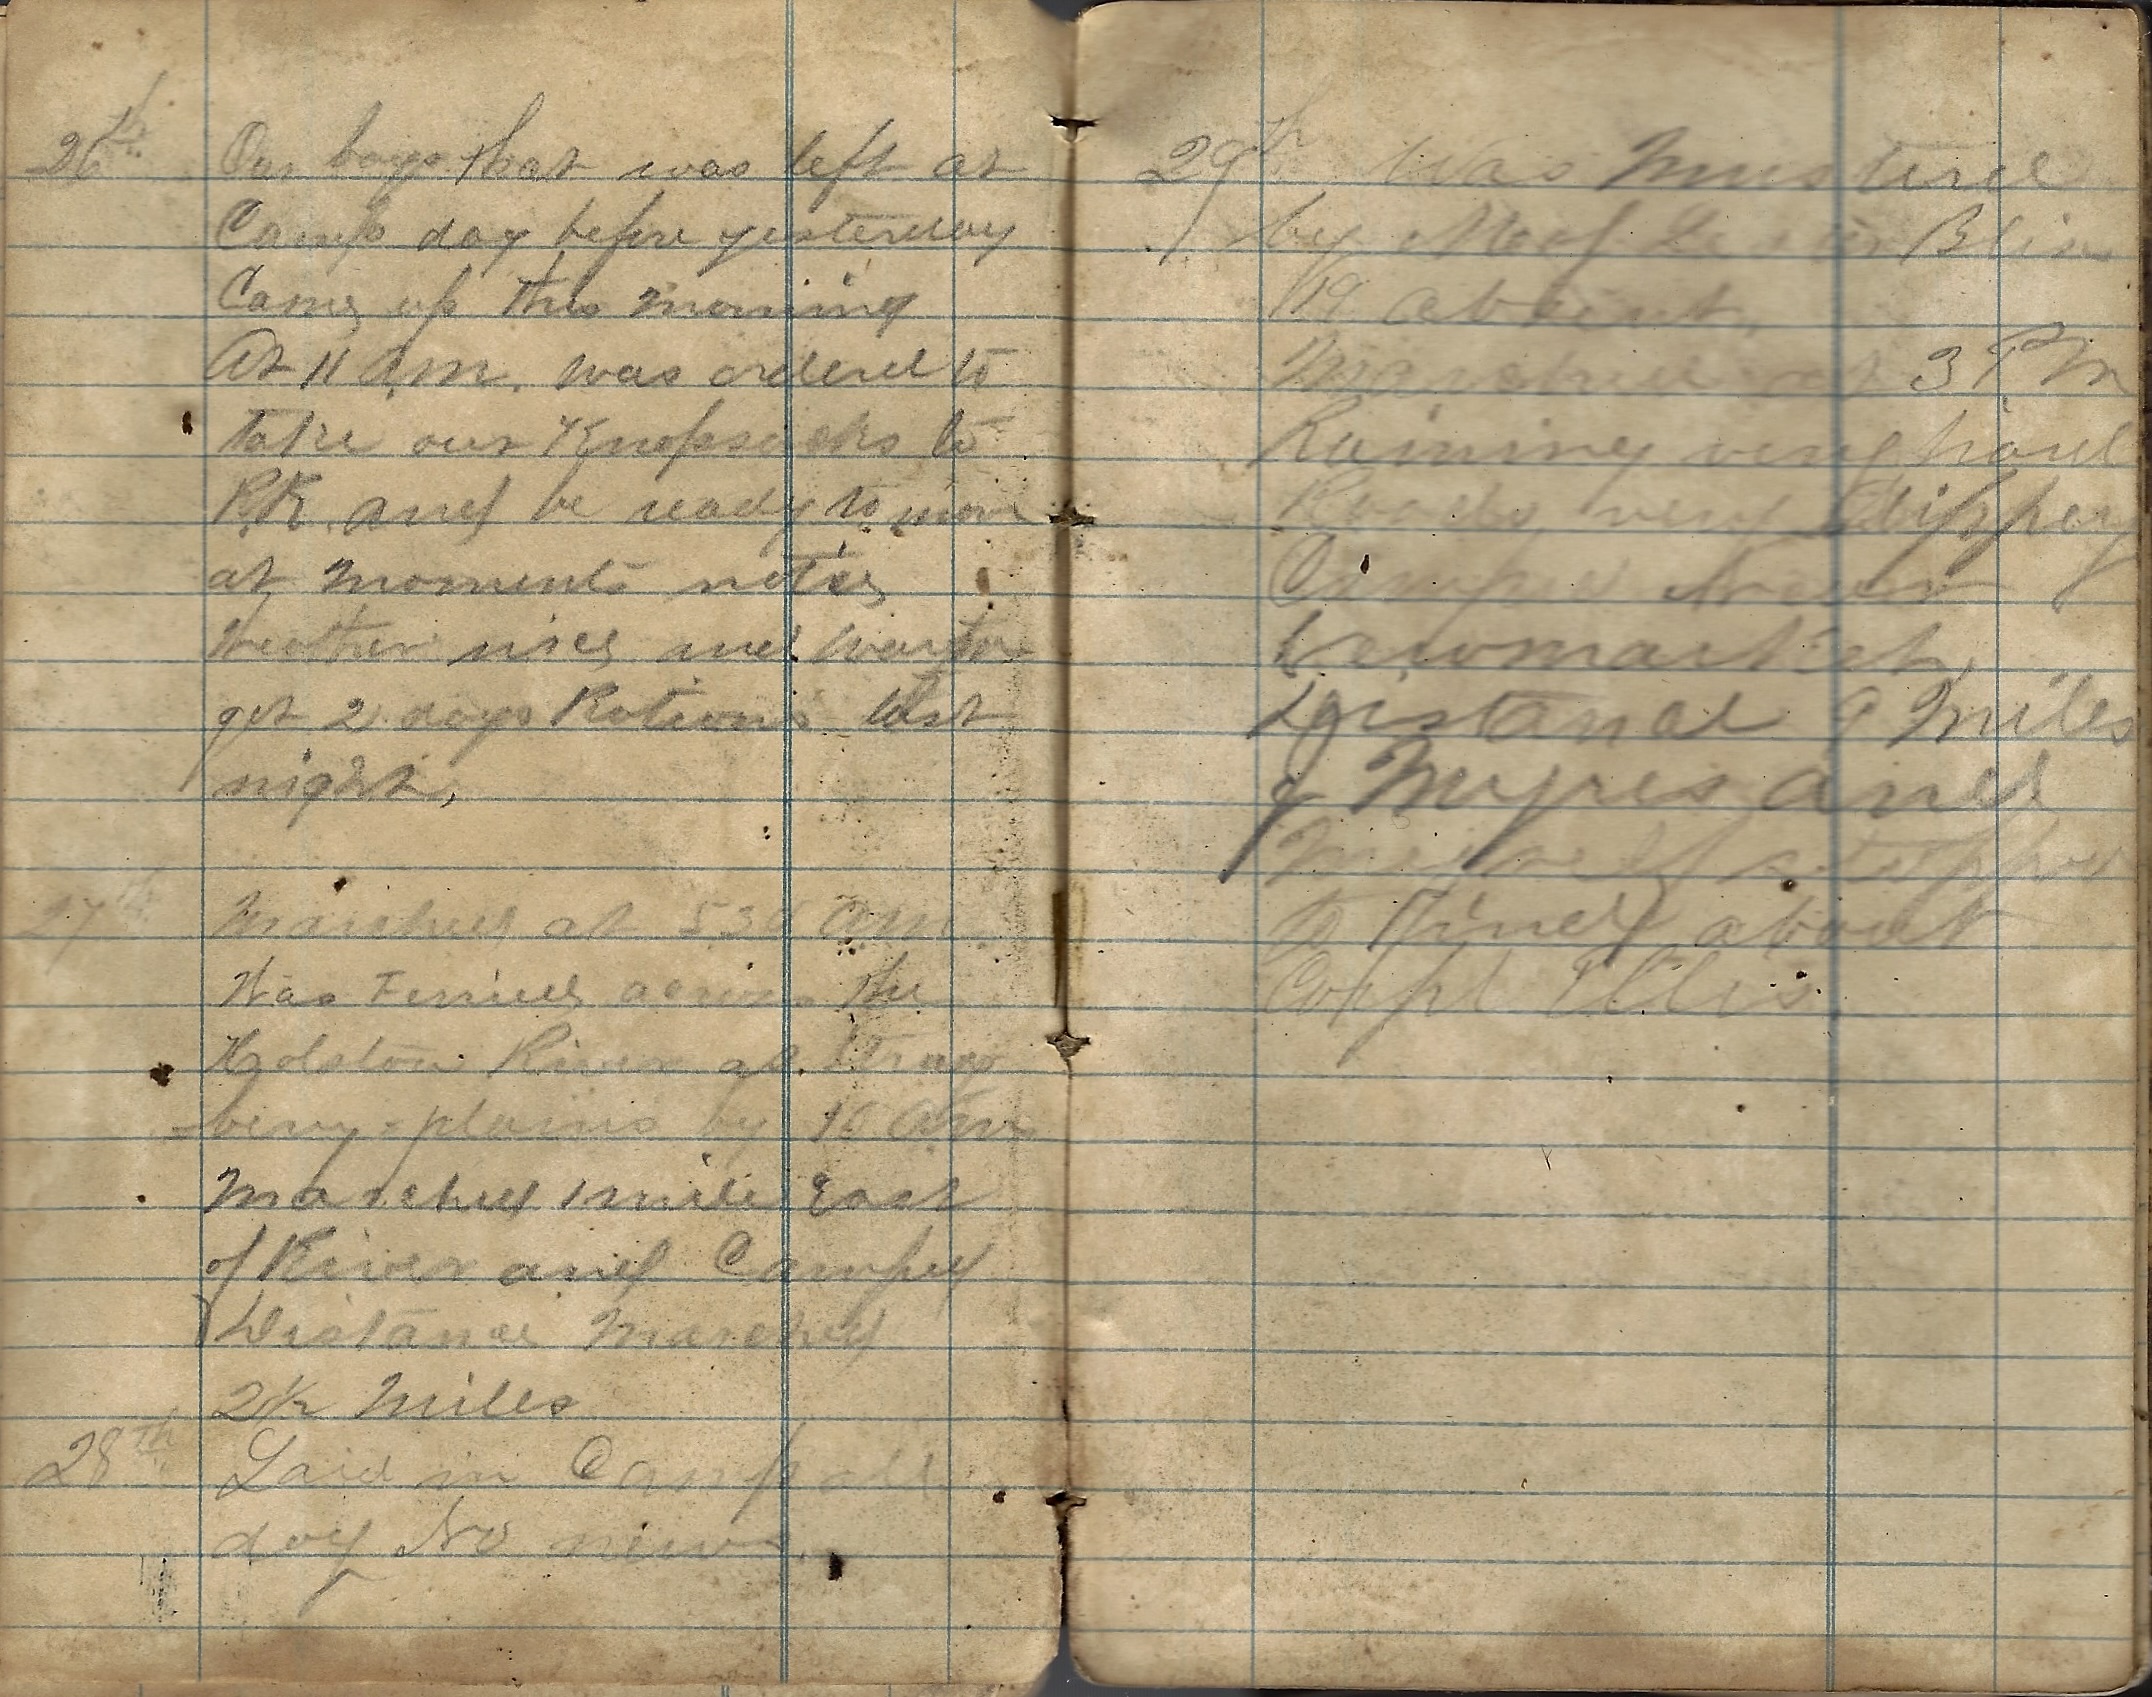 26th Our boys that was left at
Camp day before yesterday
Came up this morning
At 11 A.m. was ordered to
take our Knapsacks to
R.R. and be ready to move
at moments notice
Weather nice and warm
get 2 days Rations last
night,
27th Marched at 530 A.M.
Was Ferried across the
Holston River at Straw
berry=plains by 10 A.m
Marched 1 mile East
of River and Camped
Distance Marched
2½ Miles
28th Laid in Camp all
day No news.
29th Was Mustered
by Bliss
19 absent,
Marched at 3 P M
Raining very hard
Roads very Slippery
Camped Near
Newmarket,
Distance 9 Miles
J Myres and
Myself stopped
to Find about
Capt Ellis